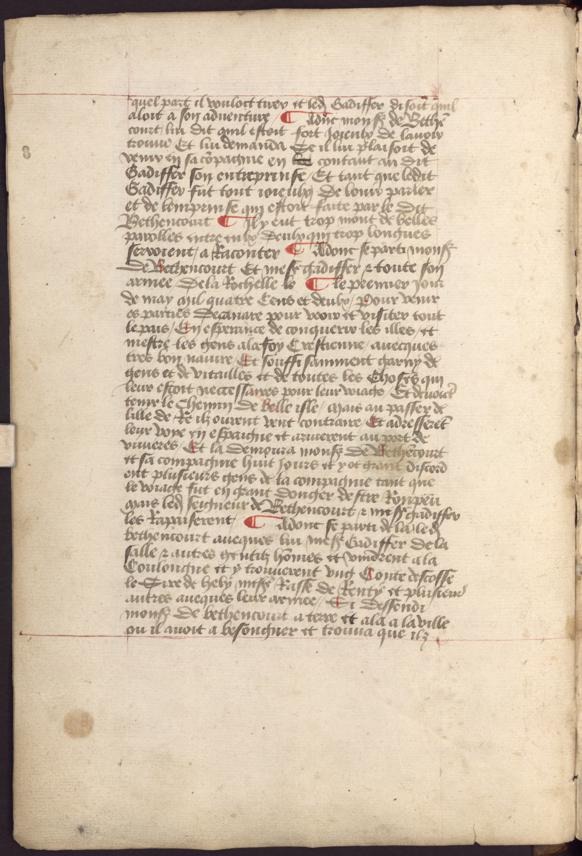 quel part il vouloct tirer et led Gadiffer disoit quil
aloit a son adventure / ¶ Adonc mons de Beth
court lui dit quil estoit fort joieulx de lavoir
trouve Et lui demanda Se il lui plaisoit de
venir en sa copagnie en contant au dit
Gadiffer son entreprinse / Et tant que ledit
Gadiffer fut tout joieulx de louir parler
et de lemprinse qui estoit faite par le Dit
Bethencourt ¶ Il y eut trop mont de belles
parolles entre eulx deulx qui trop longues
seroient / a Raconter ¶ Adonc se parti mons
De Bethencourt Et mesr gadiffer & toute son
armee De la Rochelle le ¶ le premier Jour
de may mil quatre Cens et deulx / Pour venir
es parties De canare pour veoir et visiter tout
le pais / En esperance de conquerir les illes / et
mestre les gens a la foy Crestienne / avecques
tres bon navire Et souffisamment garny de
gens et de vitailles et de toutes les Choses qui
leur estoit neccessaires pour leur voiage Et devoiet
tenir le Chemin De Belle isle / mais au passer de
lille de Re ilz eurent vent contraire Et adresseret
leur voye en espaigne et arriverent au port de
vivieres / Et la demoura mons de Bethecourt
et sa compaignie huit Jours et y ot grant discord
ent plusieurs gens de la compaignie tant que
le voiage fut en grant Danger destre Rompeu
mais led seigneur de Bethencourt & mess gadiffer
les Rapaiserent ¶ Adonc se parti de la led
bethencourt aueques lui mess Gadiffer De la
salle & autres gentilz hommes et vindrent a la
Coulongne et y trouverent ung Conte descosse
le Sire de hely messr Rasse de Renty et plusieurs
autres aueques leur armee / Si dessendi
mons De bethencourt a terre et ala a la ville
ou il avoit a besongner et trouva que ilz
8